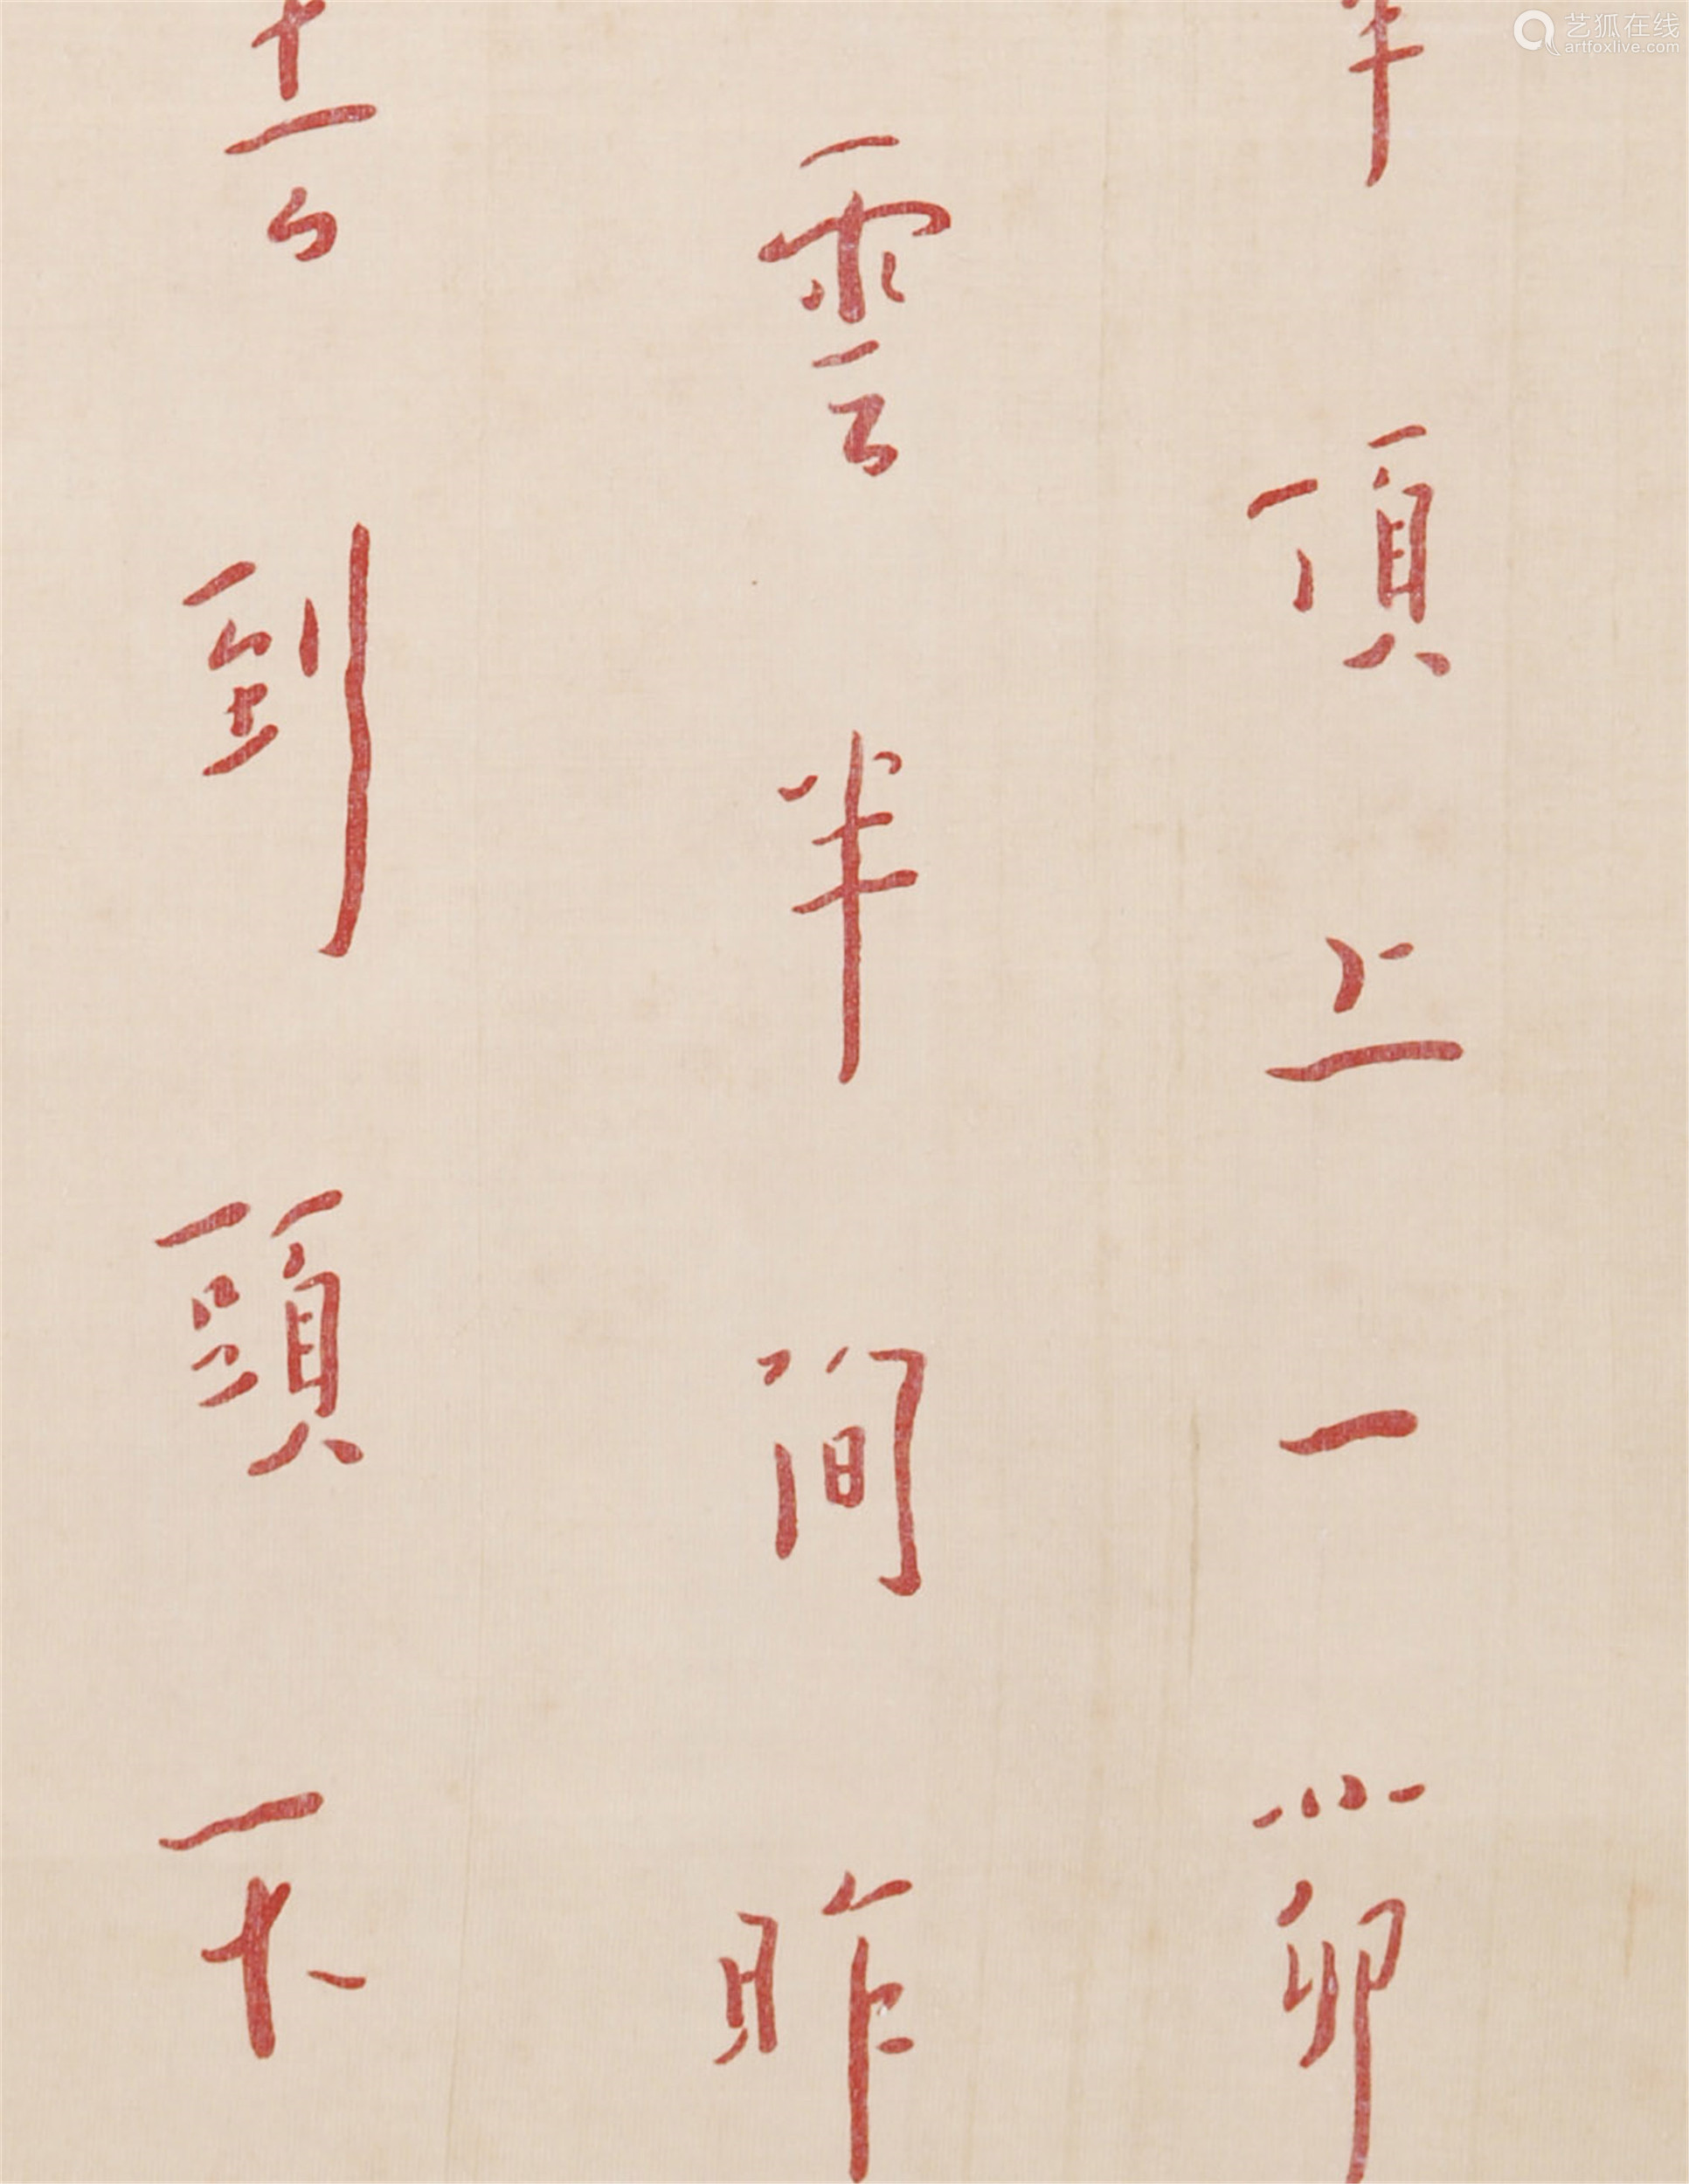 頂上一茆
雲半間昨
去到頭不
艺狐在线
artfoxlive.com